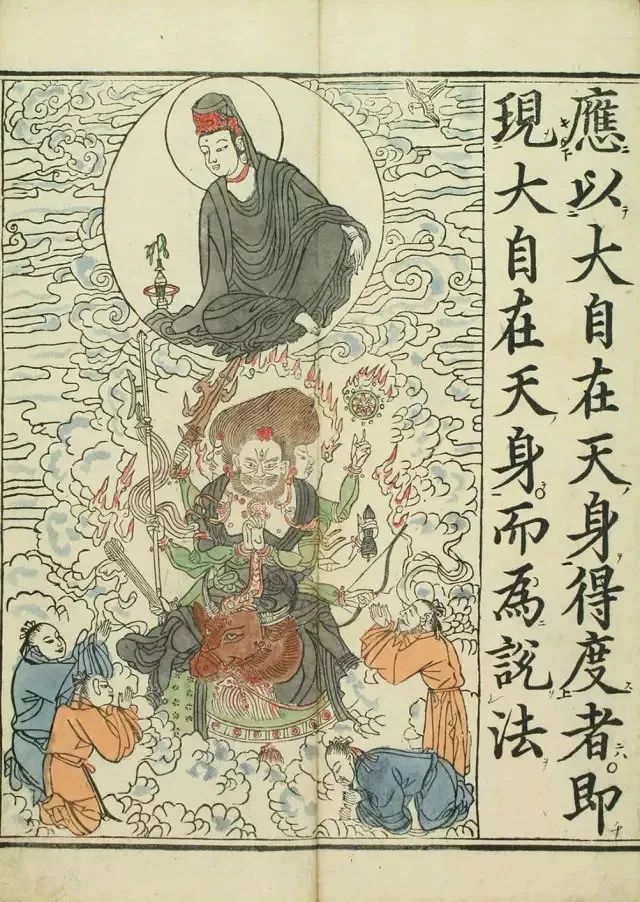 應以大自在天身得度者即
現大自在天身而為說法